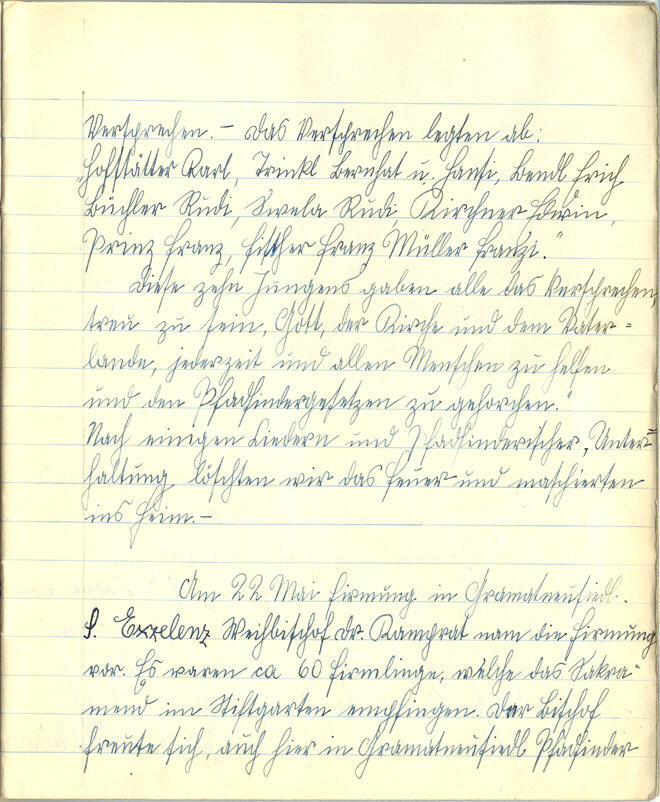 Versprechen. – Das Versprechen legten ab:
"Hofstätter Karl, Trinkl Bernhat u. Hansi, Bendl Erich
Büchler Rudi, Swela Rudi, Kirchner Edwin,
Prinz Franz, Fischer Franz Müller Franzi."
Diese zehn Jungens gaben alle das Versprechen,
treu zu sein, Gott, der Kirche und dem Vater=
lande, jederzeit und allen Menschen zu helfen
und den Pfadfindergesetzen zu gehorchen."
Nach einigen Liedern und Pfadfinderischer, Unter=
haltung löschten wir das Feuer und maschierten
ins Heim. –
Am 22 Mai Firmung in Gramatneusiedl.
S. Exzelenz Weihbischof Dr. Kamprat nam die Firmung
vor. Es waren ca 60 Firmlinge, welche das Sakra-
mend im Stiftgarten empfingen. Der Bischof
freute sich, auch hier in Gramatneusiedl Pfadfinder